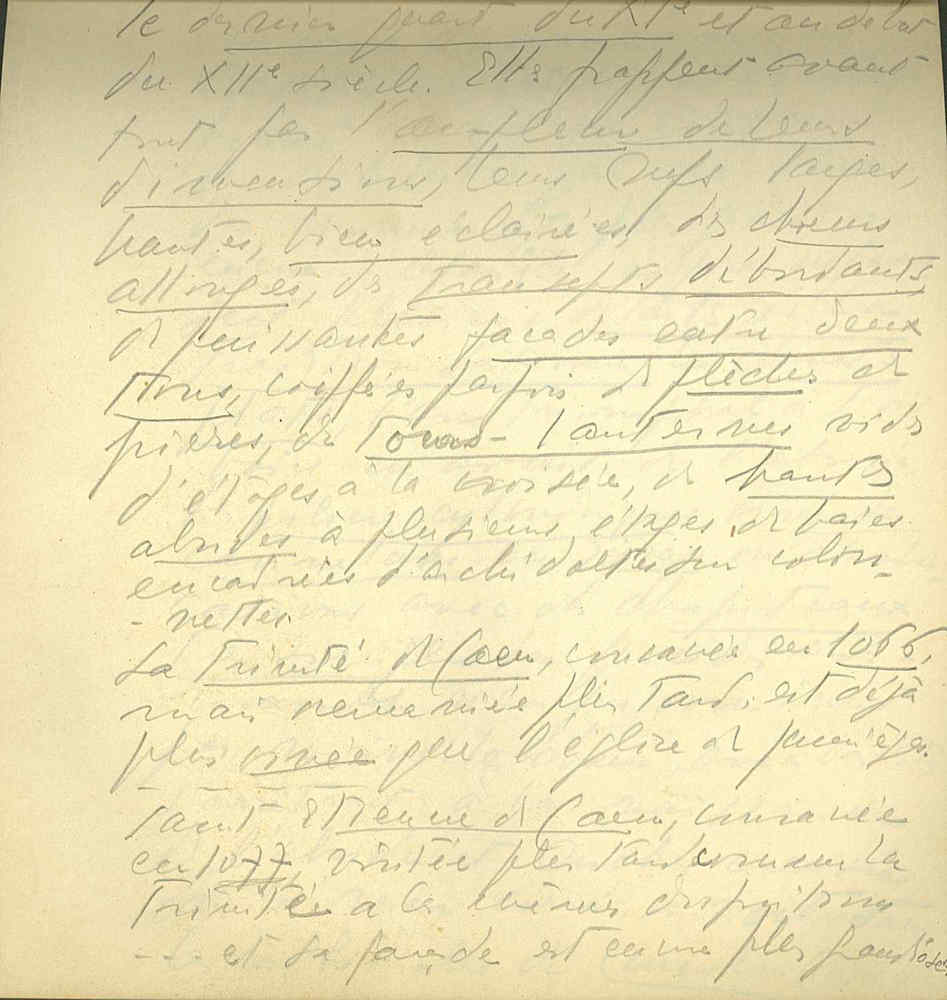 le dernier quart du XIe et au début
du XIIe siècle. Elles frappent avant
tout par l'ampleur de leurs
dimensions, leurs nefs larges,
hautes, bien eclairées, des chœurs
allongés, des transepts débordants,
de puissantes façades entre deux
tours, coiffées parfois de flèches de
pierres, des Tours-lanternes vides
d'étages à la croisée, de hautes
absides à plusieurs étages de baies
encadrées d'archivoltes sur colon-
- nettes.
La Trinité de Caen, consacrée en 1066,
mais remaniée plus Tard, est déjà
plus que l'église de Jumièges.
Saint Etienne de Caen, consacrée
en 1077, voûtée plus Tard comme la
Trinité a les mêmes dispositions
- - - et sa façade est encore plus grandiose